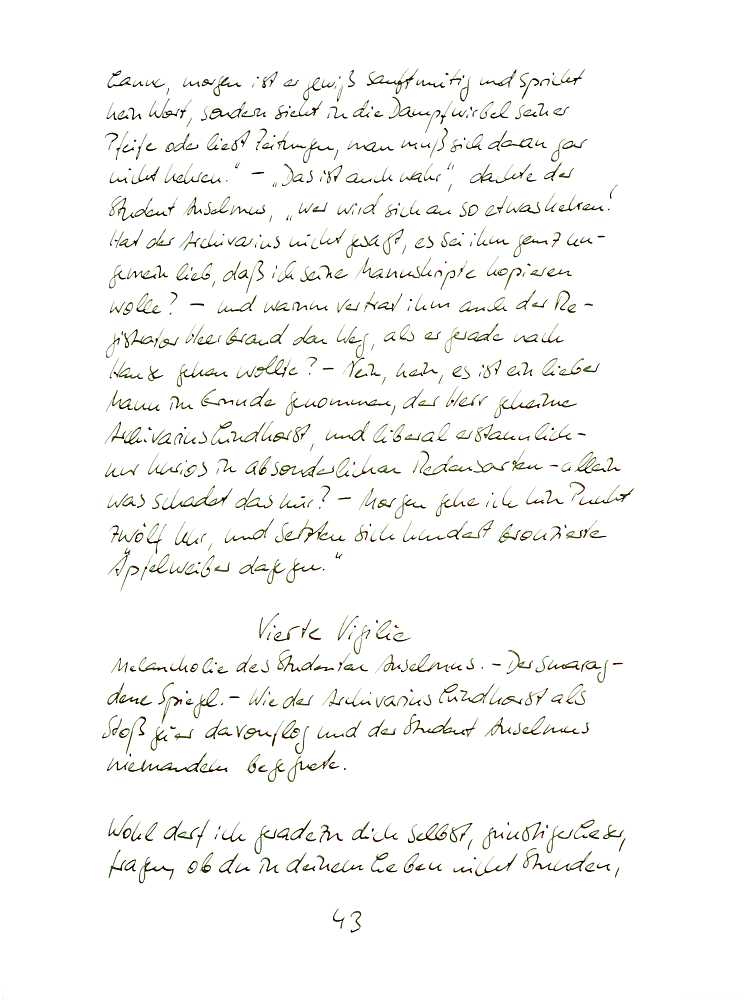 Laune, morgen ist er gewiß sanftmütig und spricht
kein Wort, sondern sieht in die Dampfwirbel seiner
Pfeife oder liest Zeitungen, man muß sich daran gar
nicht kehren." – „Das ist auch wahr", dachte der
Student Anselmus, „wer wird sich an so etwas kehren!
Hat der Archivarius nicht gesagt, es sei ihm ganz un-
gemein lieb, daß ich seine Manuskripte kopieren
wolle? – und warum vertrat ihm auch der Re-
gistrator Heerbrand den Weg, als er gerade nach
Hause gehen wollte? – Nein, nein, es ist ein lieber
Mann im Grunde genommen, der Herr geheime
Archivarius Lindhorst, und liberal erstaunlich –
nur kurios in absonderlichen Redensarten – allein
was schadet das mir? – Morgen gehe ich hin Punkt
zwölf Uhr, und setzten sich hundert bronzierte
Äpfelweiber dagegen."
Vierte Vigilie
Melancholie des Studenten Anselmus. – Der smarag-
dene Spiegel. – Wie der Archivarius Lindhorst als
Stoßgeier davonflog und der Student Anselmus
niemandem begegnete.
Wohl darf ich geradezu dich selbst, günstiger Leser,
fragen, ob du in deinem Leben nicht Stunden,
43